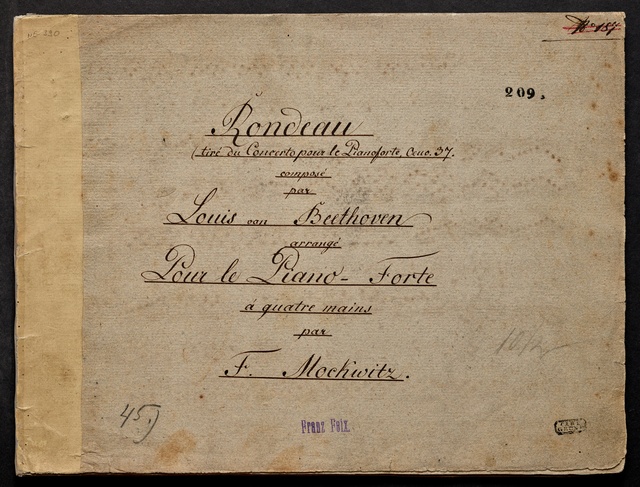 209.
Rondeau
(tiré du Concerto pour le Pianoforte, Oeuv. 37.
composé
par
Louis van Beethoven
arrangé
Pour le Piano-Forte
à quatre mains
par
F. Mockwitz.
45)
Franz Felx.